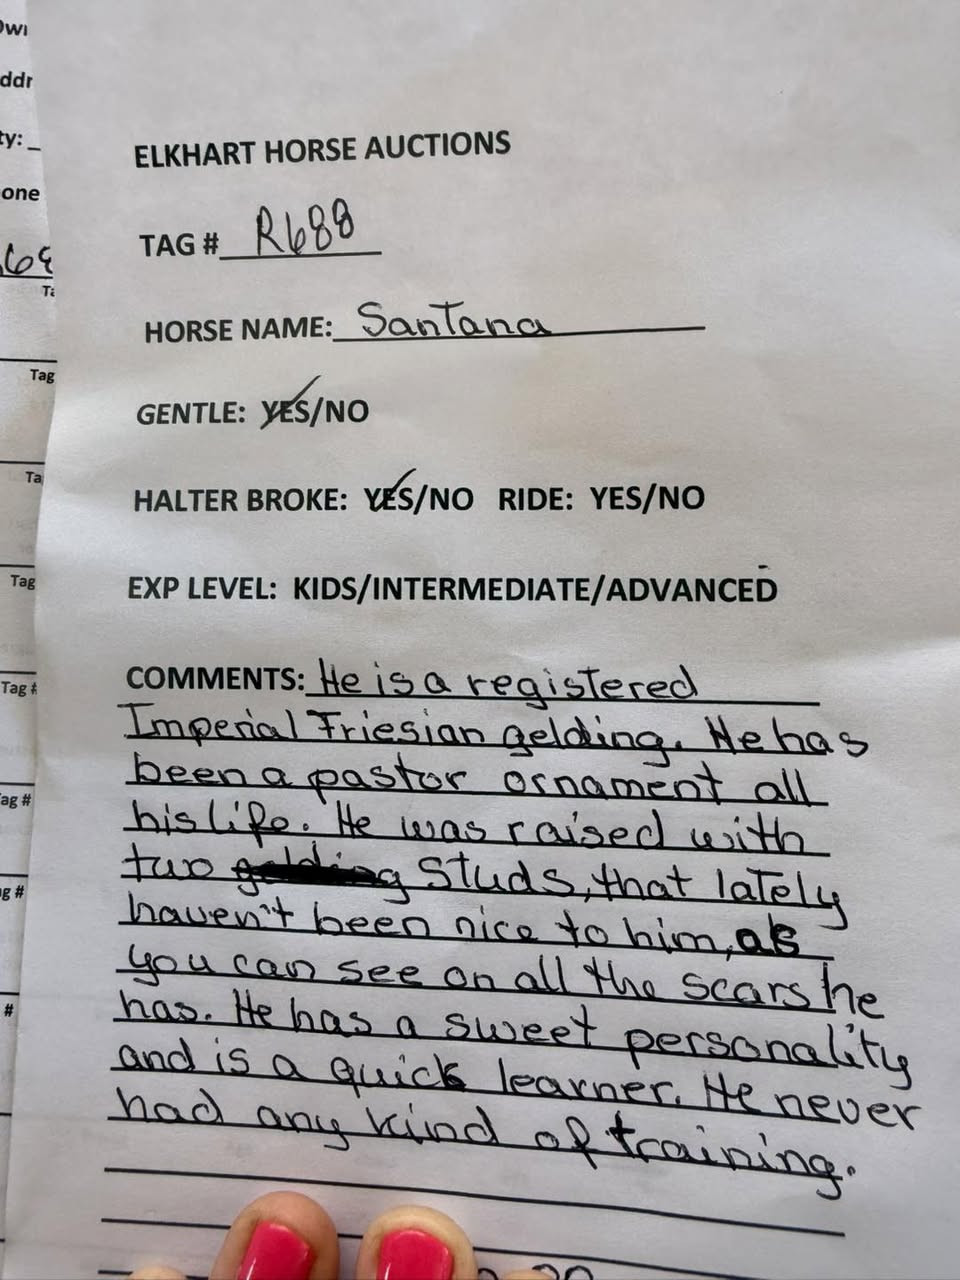 Owi
ddr
ty: _
one
68
Ta
Tag
Ta
Tag
Tag #
ag #
g #
#
ELKHART HORSE AUCTIONS
TAG # R688
HORSE NAME: Santana
GENTLE: YES/NO
HALTER BROKE: YES/NO RIDE: YES/NO
EXP LEVEL: KIDS/INTERMEDIATE/ADVANCED
COMMENTS: He is a registered
Imperial Friesian gelding. He has
been a pastor ornament all
his life. He was raised with
two gelding Studs, that lately
haven't been nice to him, as
you can see on all the scars he
has. He has a sweet personality
and is a quick learner. He never
had any kind of training.